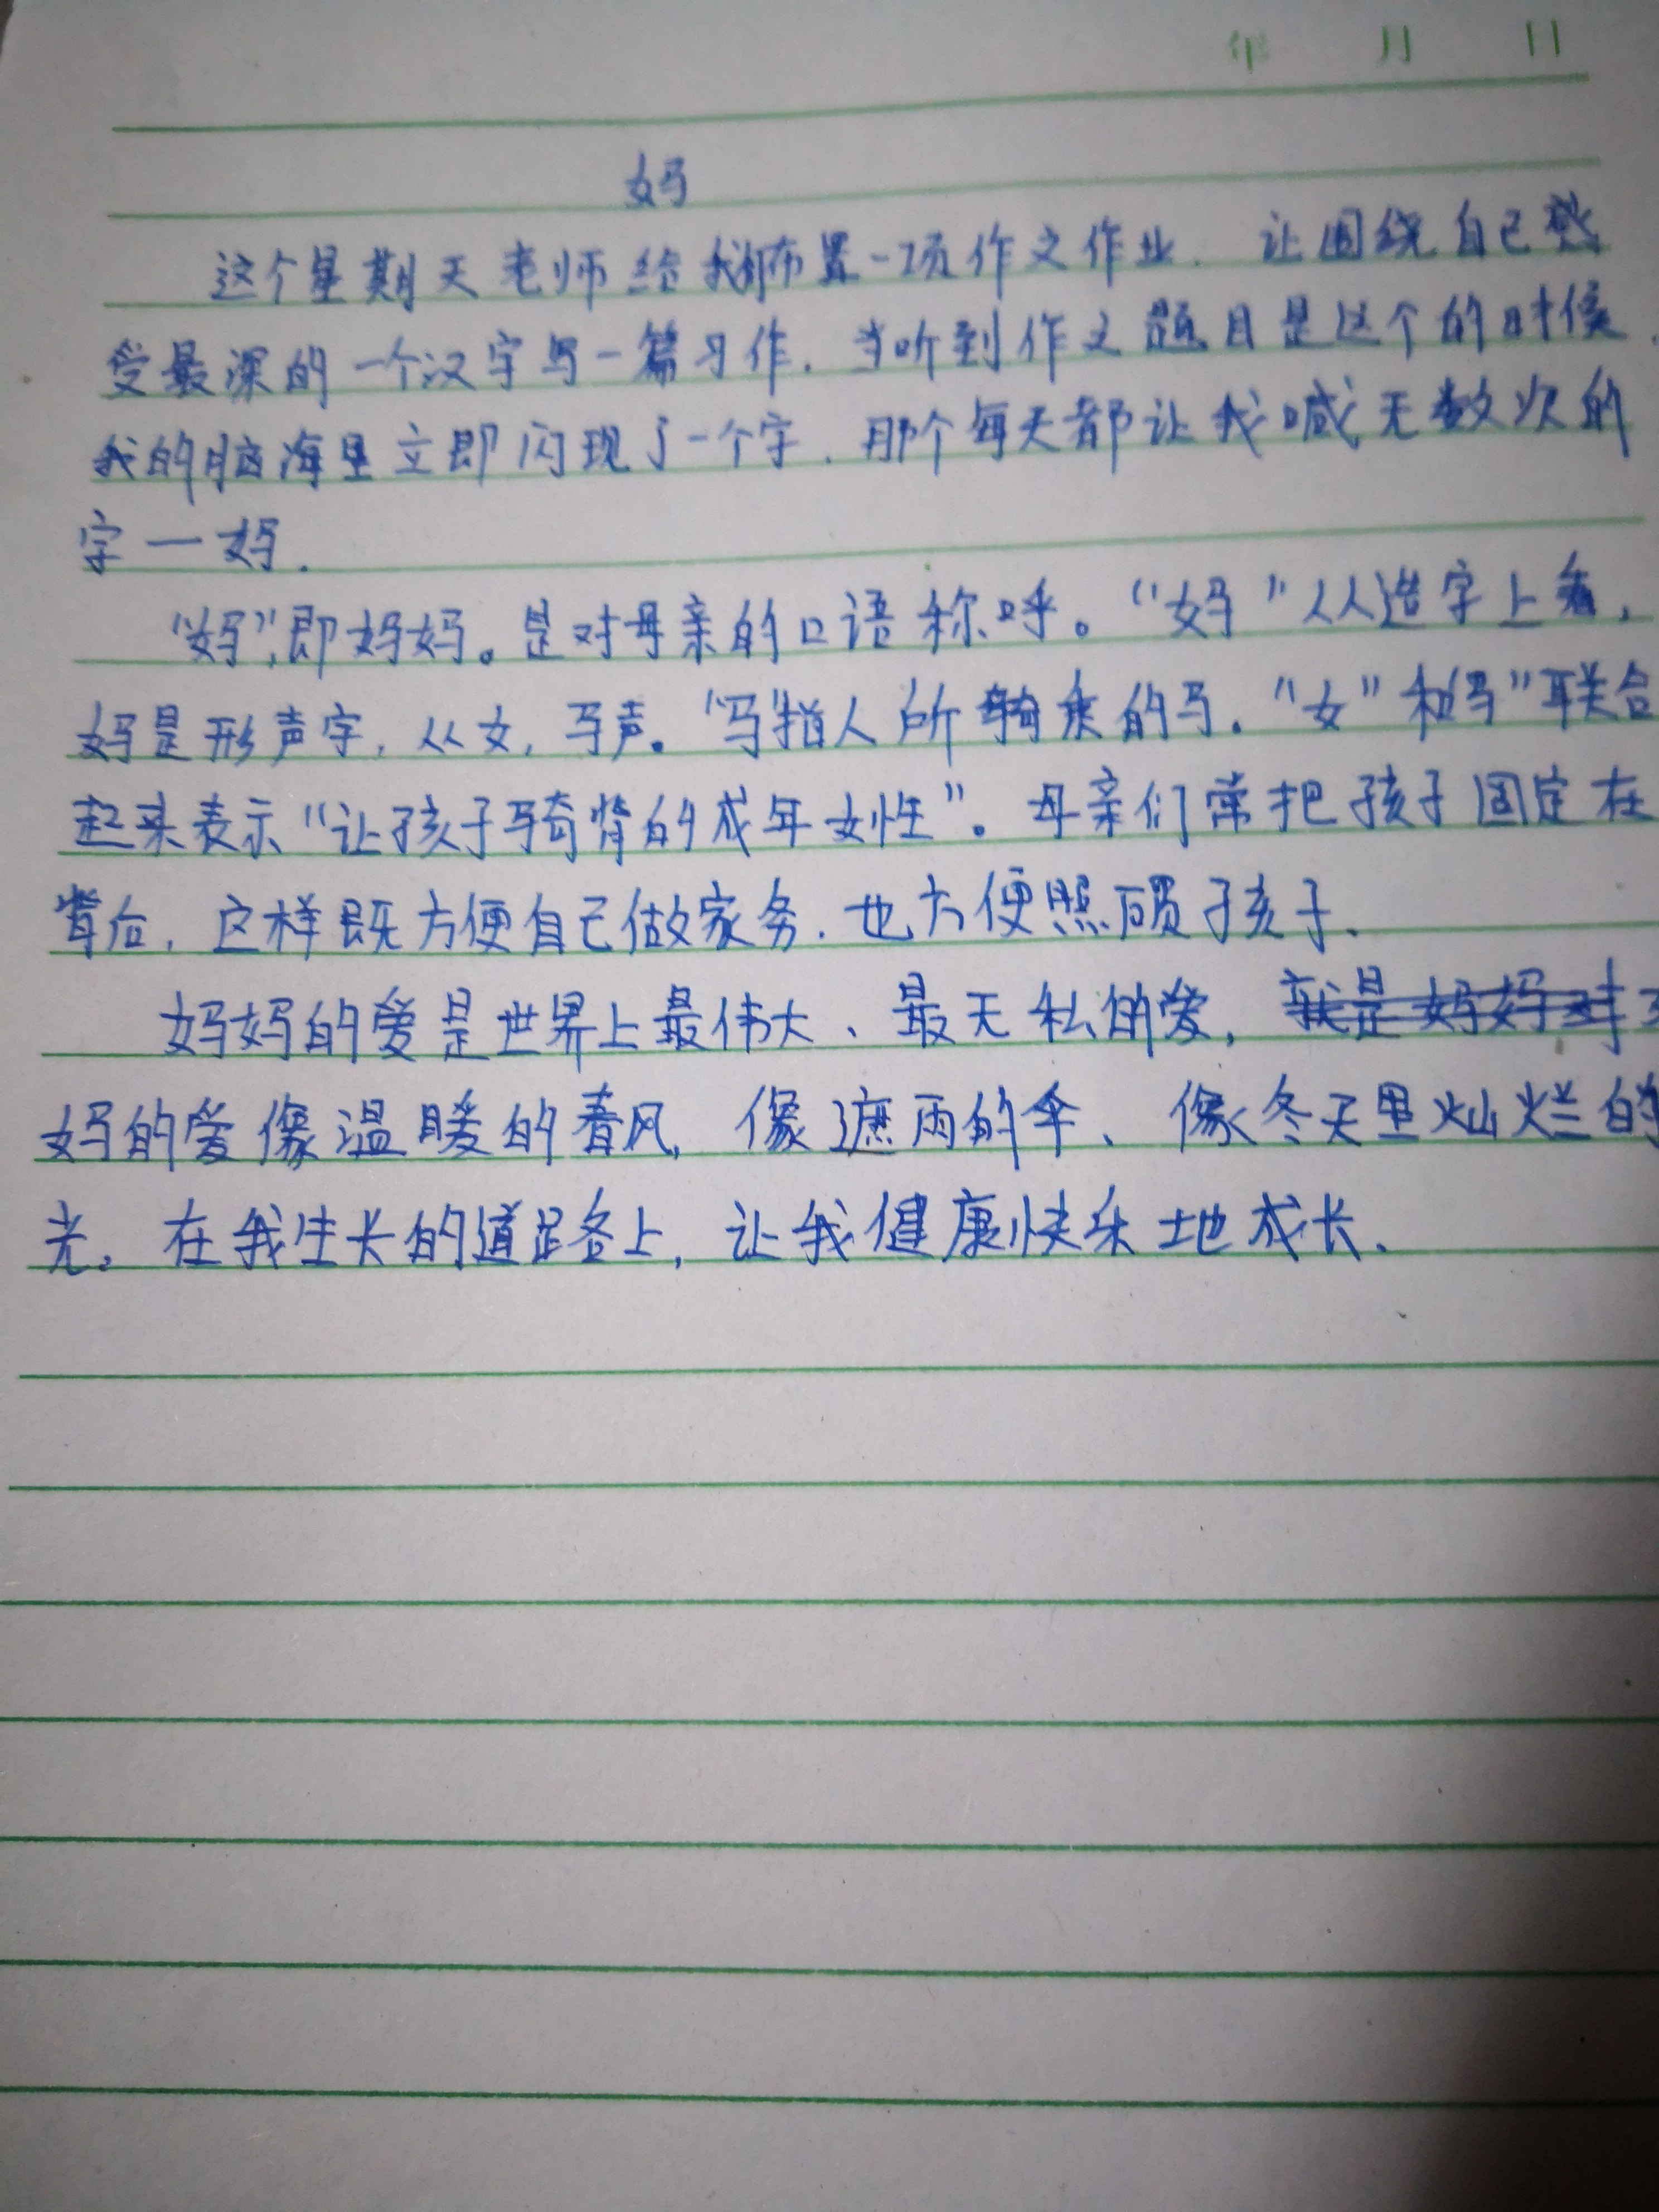 年 月 日
妈
这个星期天老师给我们布置一项作文作业.让围绕自己感
受最深的一个汉字写一篇习作.当听到作文题目是这个的时候,
我的脑海里立即闪现了一个字.那个每天都让我喊无数次的
字一妈.
"妈",即妈妈。是对母亲的口语称呼。"妈"从人造字上看,
妈是形声字,从女,马声。"马"指人所骑乘的马."女"和"马"联合
起来表示"让孩子骑背的成年女性"。母亲们常把孩子固定在
背后,这样既方便自己做家务.也方便照顾孩子.
妈妈的爱是世界上最伟大、最无私的爱,就是妈妈对
妈的爱像温暖的春风,像遮雨的伞、像冬天里灿烂的
光。在我生长的道路上,让我健康快乐地成长.